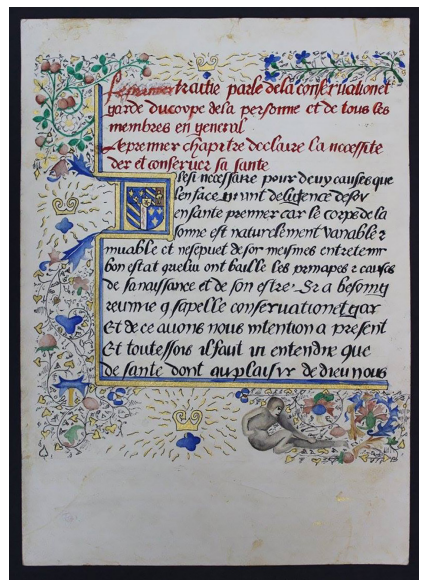 Le premier traitie parle dela conseruationet
garde ducoupe dela personne et de tous les
membres en general
Le premier chapitre declaire la necessite
der et conseruer sa sante
lest necessaire pour deux causes que
len face un int deligence desoy
ensante premier car le corps de la
somme est naturelement variable 2
muable et nesepuet desoy meismes entretenir
bon estat quelui ont baille les principes 2 causes
de sanaissance et de son estre Si a besoing
q sapelle conseruationet gar
Et de ce auons nous intention a present
Et toutessois il faut un entendre que
de sante dont auplaisir de dieu nous